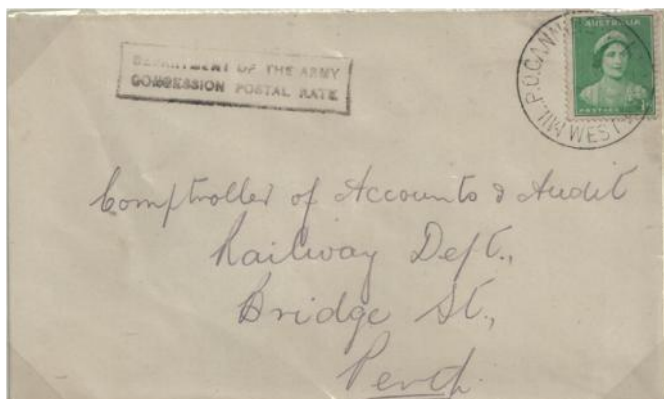 DEPARTMENT OF THE ARMY
CONCESSION POSTAL RATE
AUSTRALIA
POSTAGE
P.O. CANN
MIL.
WEST
Comptroller of Accounts & Audit
Railway Dept.,
Bridge St.,
Perth.